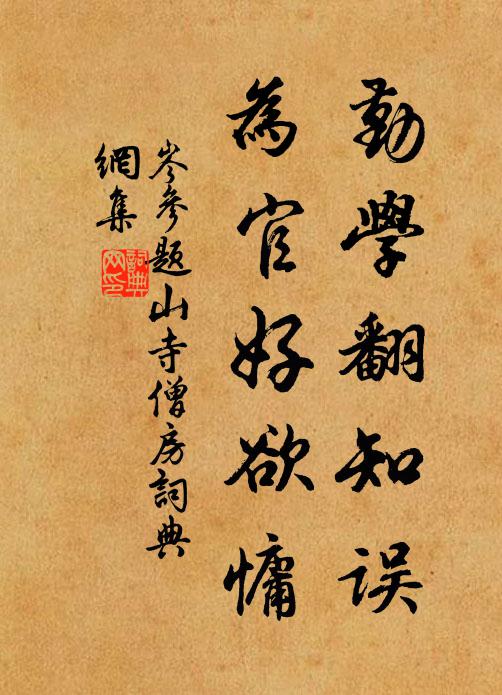 勤學翻知误
為官好欲慵
岑參題山寺僧房詞典
網集
詞典
网印